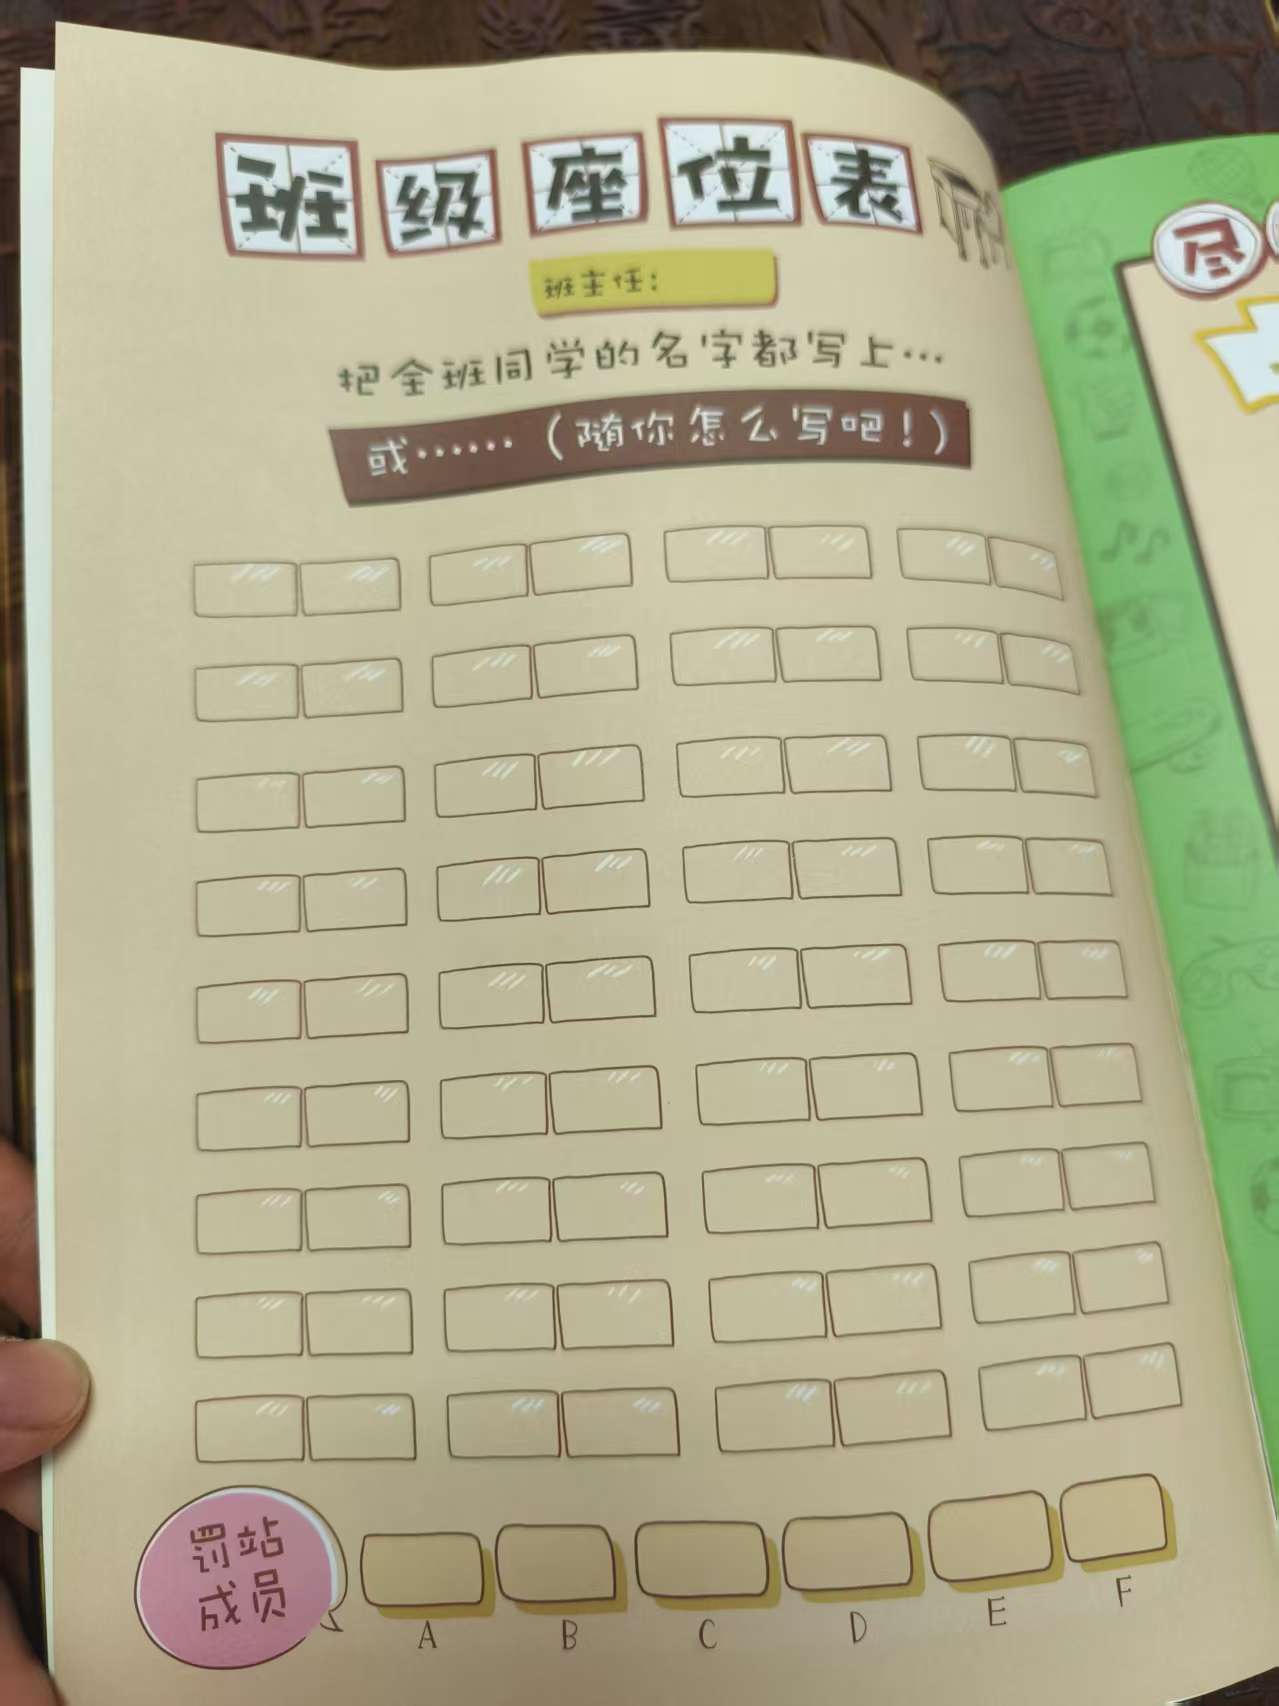 班级座位表
班主任：
把全班同学的名字都写上…
或……（随你怎么写吧！）
罚站
成员
A B C D E F
尽